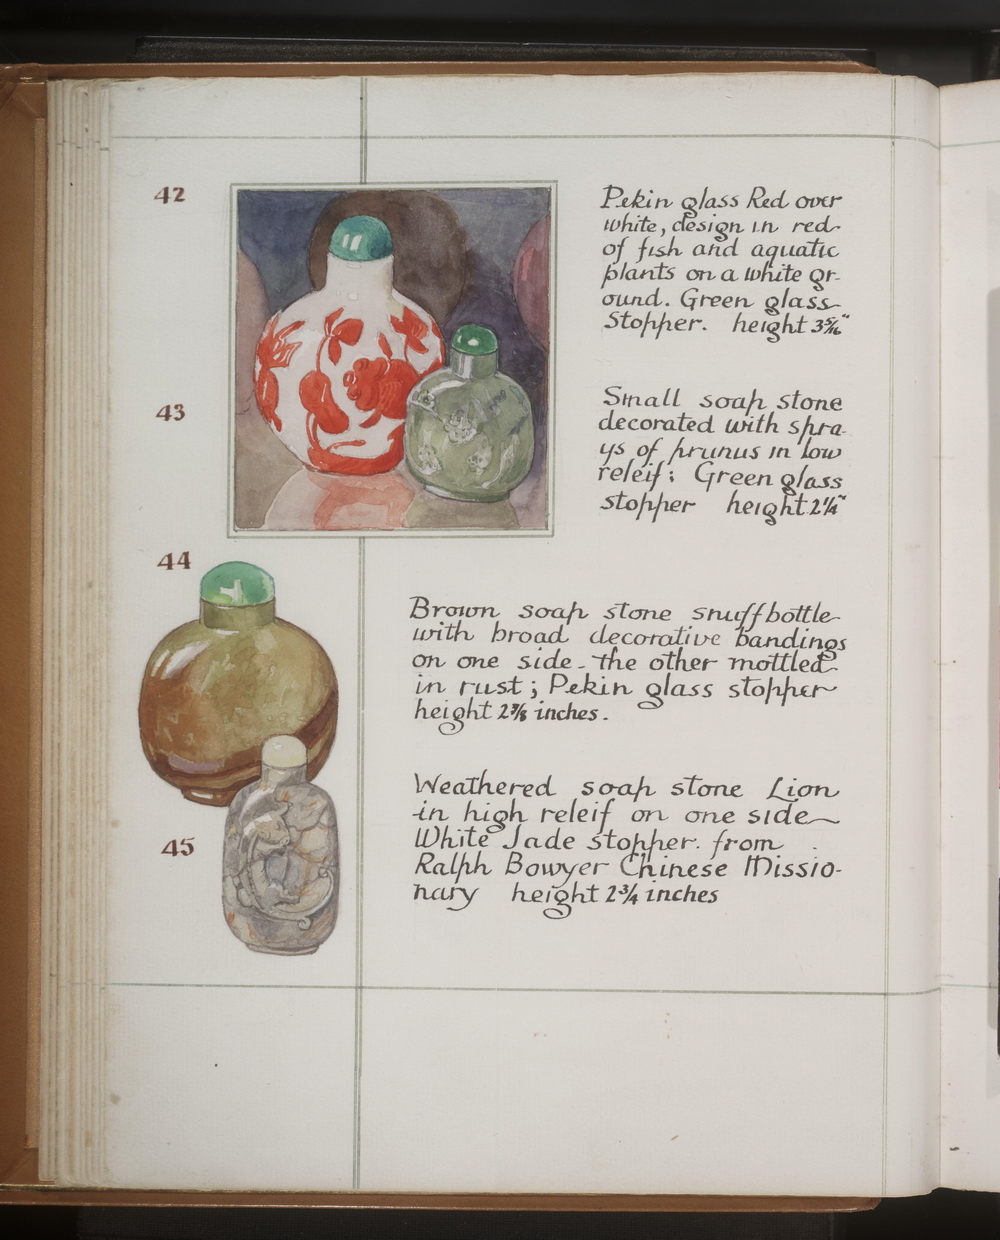 42
Pekin glass Red over
white, design in red
of fish and aquatic
plants on a white gr-
ound. Green glass
Stopper. height 3 5/16"
43
Small soap stone
decorated with spra-
ys of prunus in low
releif; Green glass
stopper height 2 1/4"
44
Brown soap stone snuff bottle
with broad decorative bandings
on one side - the other mottled
in rust; Pekin glass stopper
height 2 3/8 inches.
45
Weathered soap stone Lion
in high releif on one side
White Jade stopper. from
Ralph Bowyer Chinese Missio-
nary height 2 3/4 inches